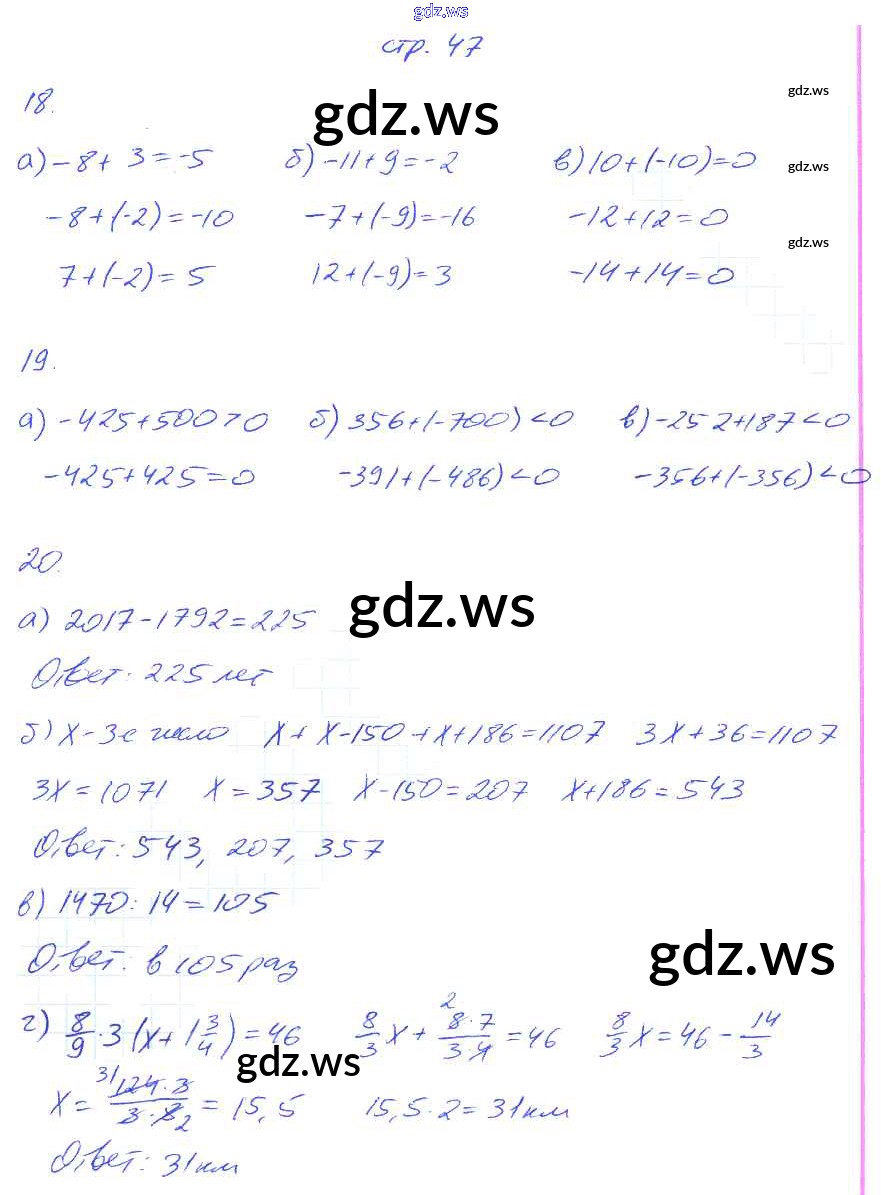 gdz.ws
стр. 47
18.
gdz.ws
gdz.ws
а) -8 + 3 = -5 б) -11 + 9 = -2 в) 10 + (-10) = 0
gdz.ws
-8 + (-2) = -10 -7 + (-9) = -16 -12 + 12 = 0
gdz.ws
7 + (-2) = 5 12 + (-9) = 3 -14 + 14 = 0
19.
а) -425 + 500 > 0 б) 356 + (-700) < 0 в) -252 + 187 < 0
-425 + 425 = 0 -391 + (-486) < 0 -356 + (-356) < 0
20.
gdz.ws
а) 2017 - 1792 = 225
Ответ: 225 лет
б) x - 3е число x + x - 150 + x + 186 = 1107 3x + 36 = 1107
3x = 1071 x = 357 x - 150 = 207 x + 186 = 543
Ответ: 543, 207, 357
в) 1470 : 14 = 105
gdz.ws
Ответ: в 105 раз
г) 8/9 · 3 (x + 1 3/4) = 46 8/3 x + 2 8·7/3·4 = 46 8/3 x = 46 - 14/3
gdz.ws
x = 31 124·3/3·8 2 = 15,5 15,5 · 2 = 31 км
Ответ: 31 км